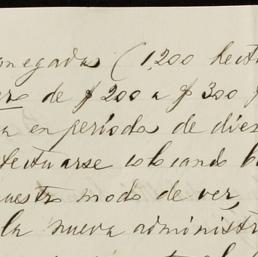 negada (1,200 hect
de $200 a $300
en período de diez
efectuarse colocando
nuestro modo de ver,
la nueva administr